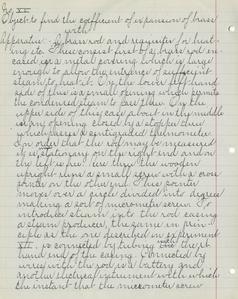 Ex XV
Object: to find the coefficient of expansion of brass
Apparatus: Brass rod and requisites for heat-
ing etc. These consist first of a brass rod en-
cased in a metal casing which is large
enough to allow the entrance of sufficient
steam to heat it. On the lower left hand
side of this is a small opening which permits
the condensed steam to pass thru. On the
upper side of this case about in the middle
is an opening closed by a stopper thru
which passes a centigrade thermometer.
In order that the rod may be measured
it is stationary on the right end and on
the left is put thru the wooden
upright
a small screw with a
pointer on the This pointer
moves over a circle divided into degrees
making a sort of micrometer screw. To
introduce steam into the rod casing
a steam producer, the same in prin-
ciple as the one described in experiment
XI. is connected by tubing with the right
hand end of the casing. Connected by
wires with the rod is a battery and
another electrical instrument with which
the instant that the micrometer screw